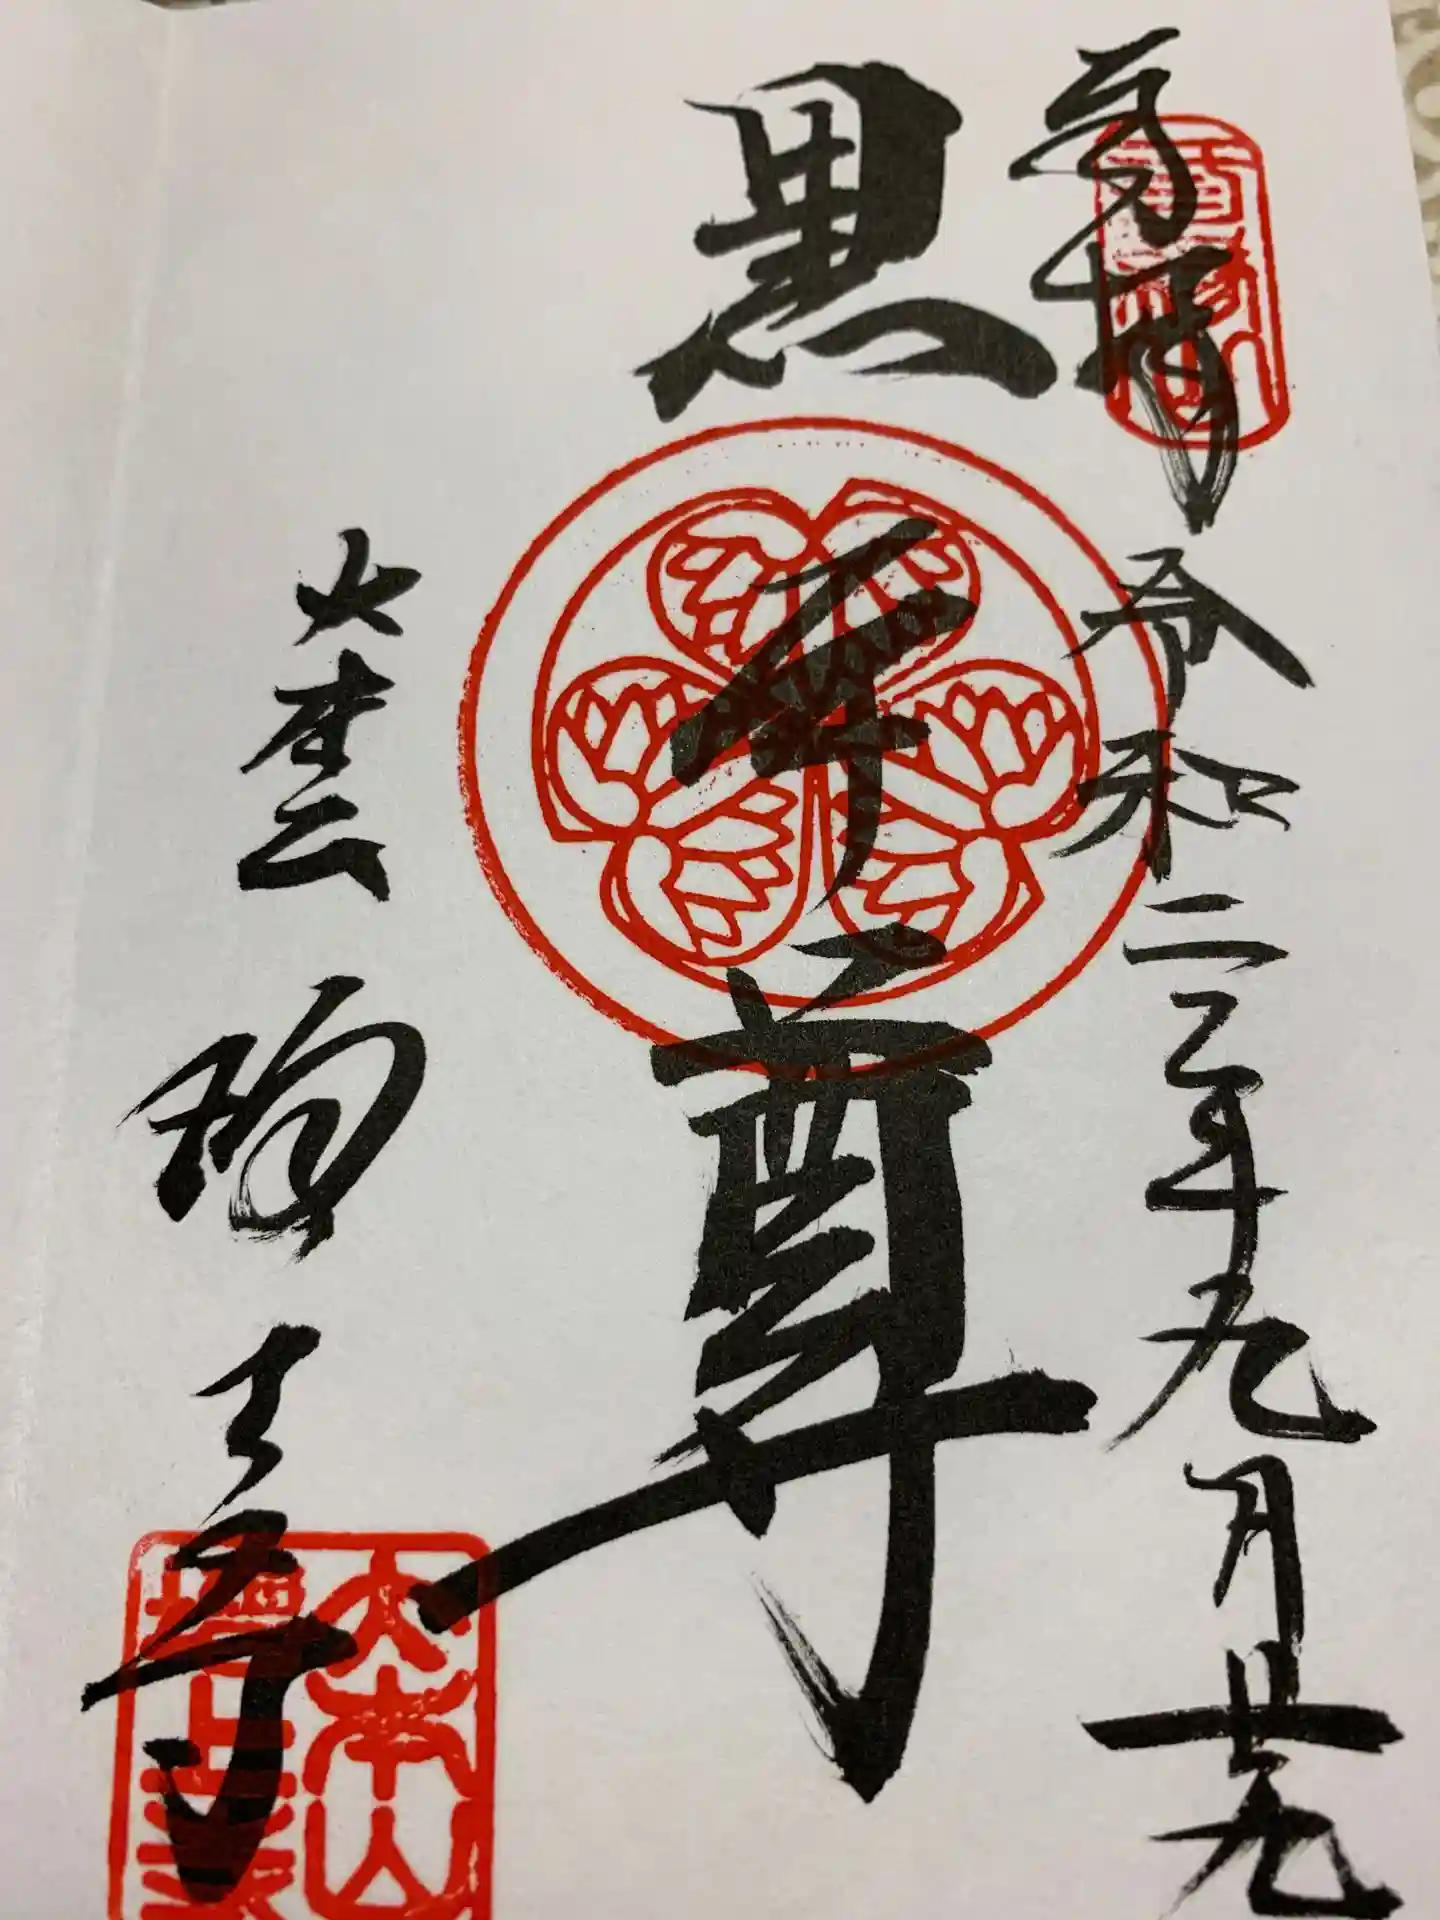 奉拝
令和二年九月廿九
黒本尊
大本山 増上寺
大本山
増上寺